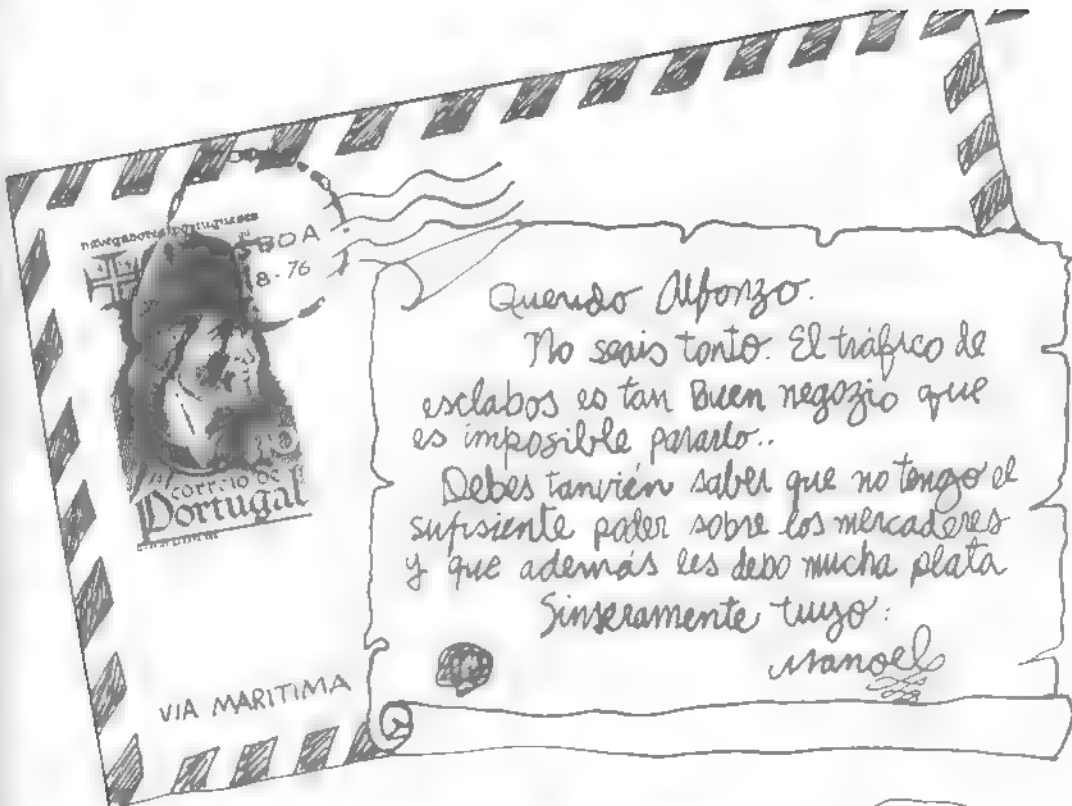 navegadores portugueses
BOA
8-76
correio de
Portugal
VIA MARITIMA
Querido Alfonzo.
No seais tonto. El tráfico de
esclabos es tan Buen negozio que
es imposible pararlo..
Debes tanvién saber que no tengo el
sufisiente poder sobre los mercaderes
y que además les debo mucha plata
Sinseramente tuyo:
Manoel